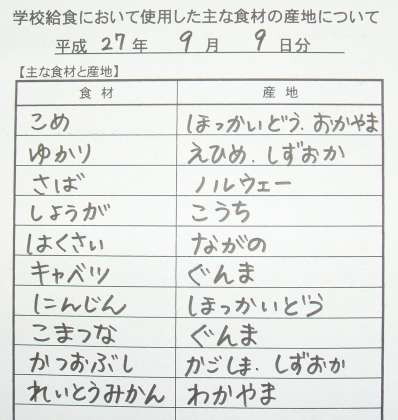 学校給食において使用した主な食材の産地について
平成 27 年 9 月 9 日分
【主な食材と産地】
食材 産地
こめ ほっかいどう.おかやま
ゆかり えひめ.しずおか
さば ノルウェー
しょうが こうち
はくさい ながの
キャベツ ぐんま
にんじん ほっかいどう
こまつな ぐんま
かつおぶし かごしま.しずおか
れいとうみかん わかやま